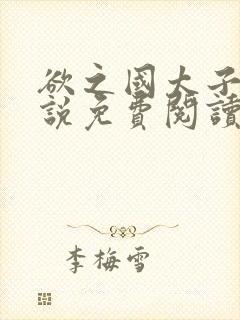 欲之國大子
說免費閱讀
李梅雪